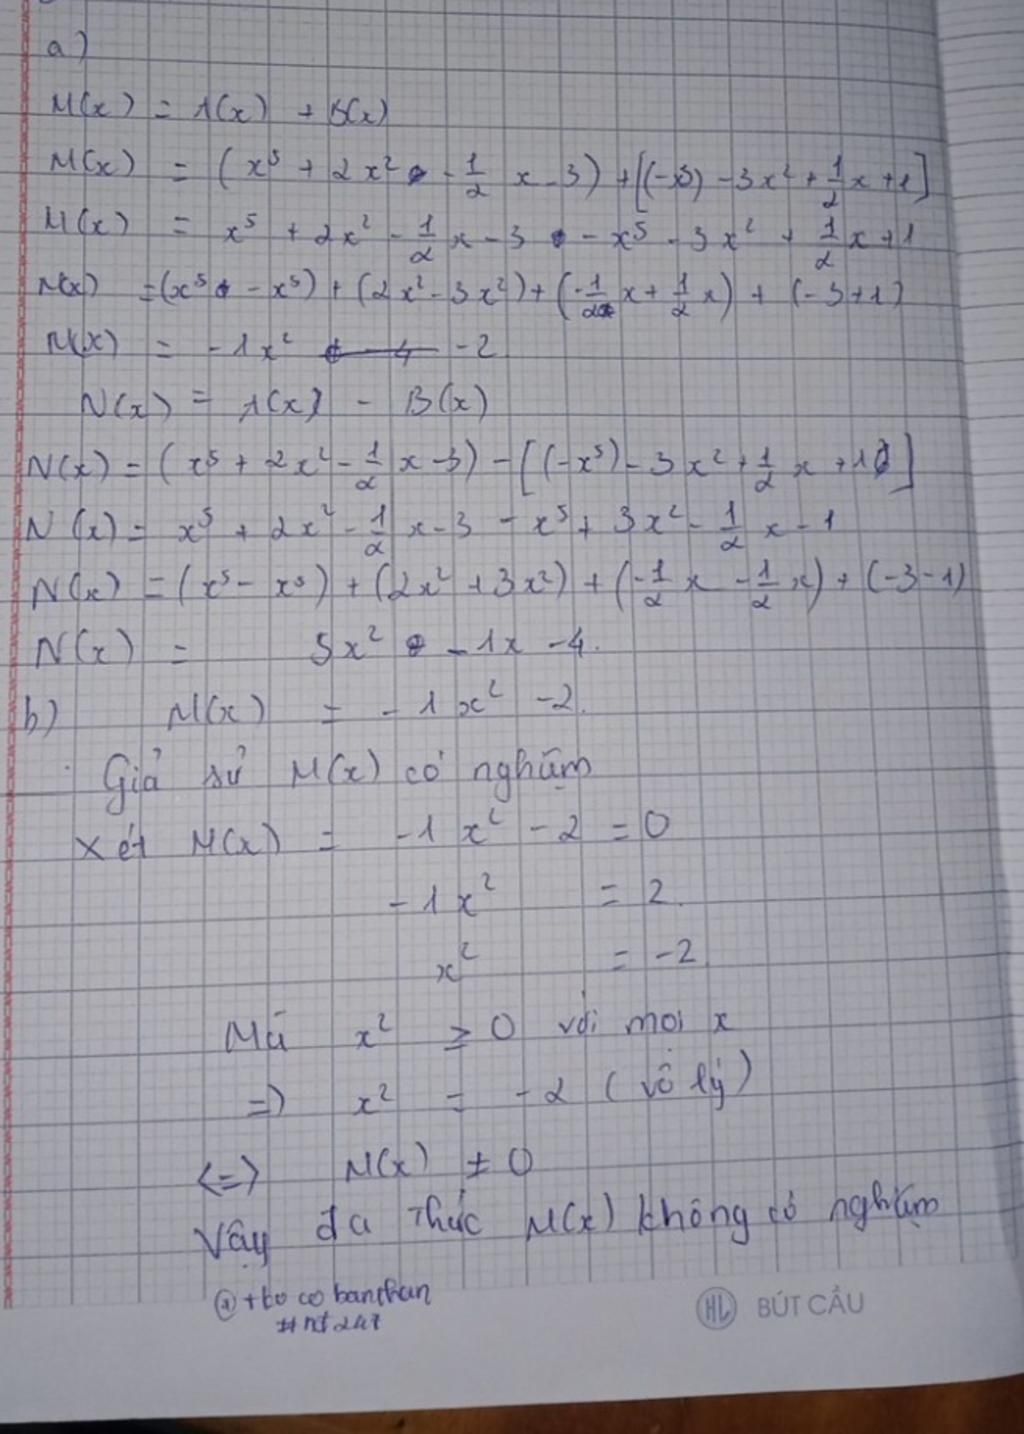 a)
M(x) = A(x) + B(x)
M(x) = (x⁵ + 2x² - 1/2 x - 3) + [(-x⁵) - 3x² + 1/2 x + 1]
M(x) = x⁵ + 2x² - 1/2 x - 3 - x⁵ - 3x² + 1/2 x + 1
M(x) = (x⁵ - x⁵) + (2x² - 3x²) + (-1/2 x + 1/2 x) + (-3 + 1)
M(x) = -1x² - 2
N(x) = A(x) - B(x)
N(x) = (x⁵ + 2x² - 1/2 x - 3) - [(-x⁵) - 3x² + 1/2 x + 1]
N(x) = x⁵ + 2x² - 1/2 x - 3 - x⁵ + 3x² - 1/2 x - 1
N(x) = (x⁵ - x⁵) + (2x² + 3x²) + (-1/2 x - 1/2 x) + (-3 - 1)
N(x) = 5x² - 1x - 4.
b) M(x) = -1x² - 2.
Giả sử M(x) có nghiệm
Xét M(x) = -1x² - 2 = 0
-1x² = 2.
x² = -2
Mà x² ≥ 0 với mọi x
=> x² = -2 (vô lý)
<=> M(x) ≠ 0
Vậy đa thức M(x) không có nghiệm
HL BÚT CẦU